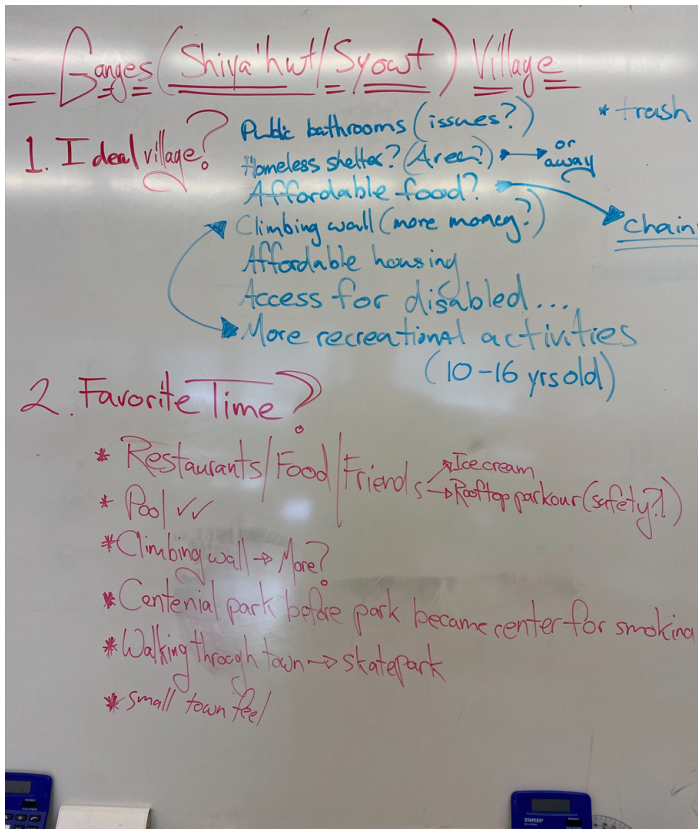 Ganges (Shiya'hwt/Syowt) Village
* trash
1. Ideal village?
Public bathrooms (issues?)
Homeless shelter? (Area?) or away
Affordable food?
chain
Climbing wall (more money?)
Affordable housing
Access for disabled...
More recreational activities
(10-16 yrs old)
2. Favorite Time?
* Restaurants/Food/Friends
Ice cream
Rooftop parkour (safety?!)
* Pool ✓✓
* Climbing wall → More?
* Centenial park before park became center for smoking
* Walking through town → skatepark
* small town feel
STAPLES